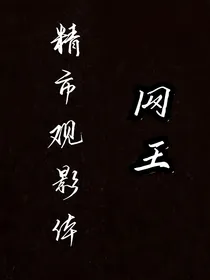 网王
精市观影体